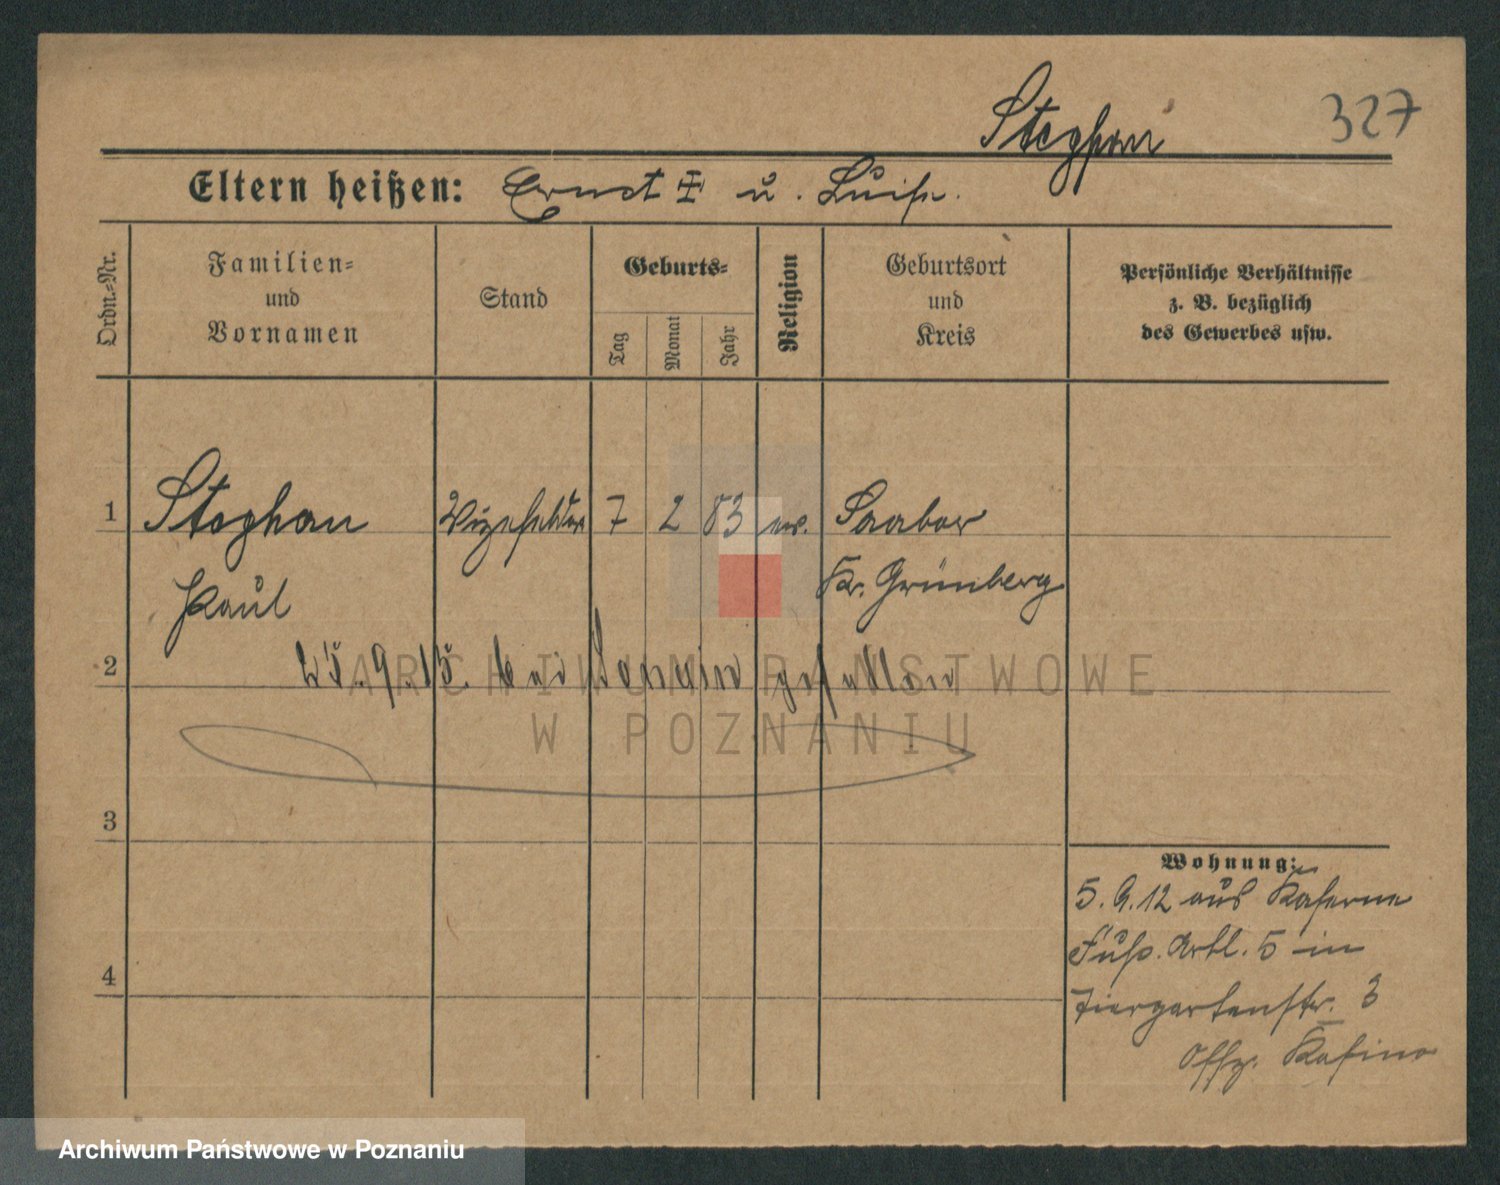 Stephan
327
Eltern heißen: Ernst ‡ u. Luise.
Ordn.-Nr.
Familien-
und
Vornamen
Stand
Geburts-
Tag
Monat
Jahr
Religion
Geburtsort
und
Kreis
Persönliche Verhältnisse
z. B. bezüglich
des Gewerbes usw.
1 Stephan Vizefeldw 7 2 83 ev. Saabor
Paul Kr. Grünberg
2 25.9.15 bei gefallen
ARCHIWUM PAŃSTWOWE
W POZNANIU
3
Wohnung:
5.9.12 aus Kaserne
Fuß. Artl. 5 in
4
Tiergartenstr. 3
Offz. Kasino
Archiwum Państwowe w Poznaniu